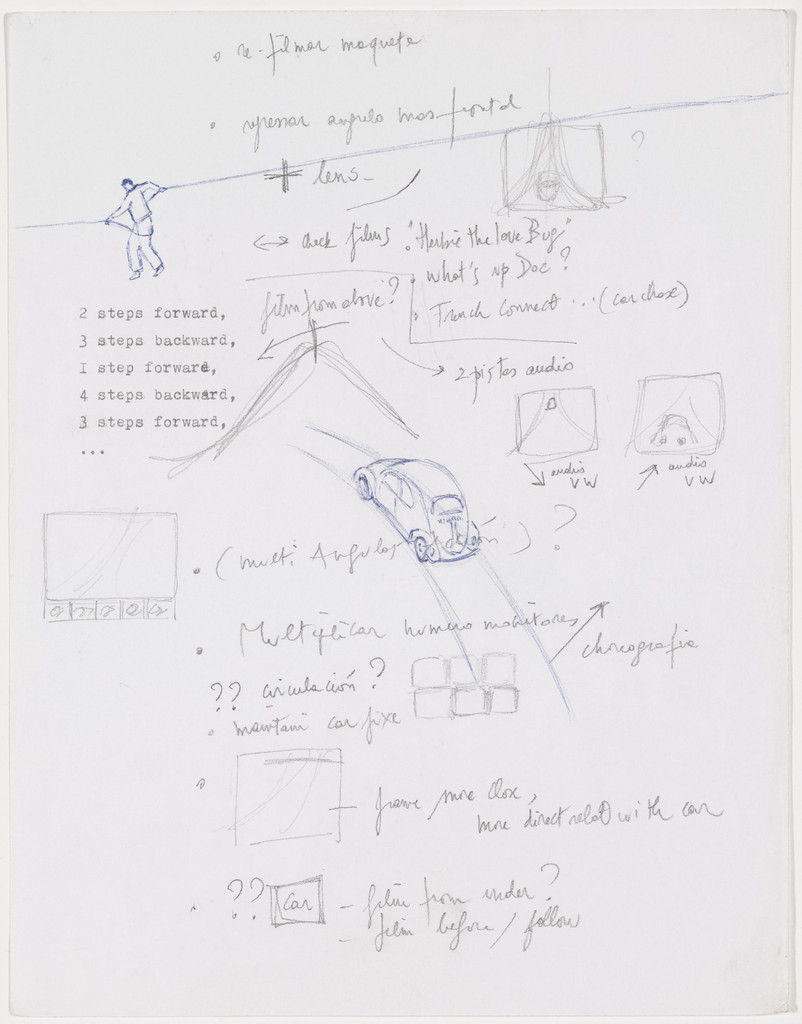 re-filmar maqueta
regresar angulo mas frontal
+ lens
?
check films "Herbie the love Bug"
what's up Doc?
French connect...(car chase)
film from above?
2 steps forward,
3 steps backward,
I step forward,
4 steps backward,
3 steps forward,
...
2 pistas audio
audio
VW
audio
VW
(multi Angulos ?
Multiplicar numero monitores
coreografia
?? circulación?
maintain car fixe
frame more close,
more direct relat with car
?? car - film from under?
- film before / follow